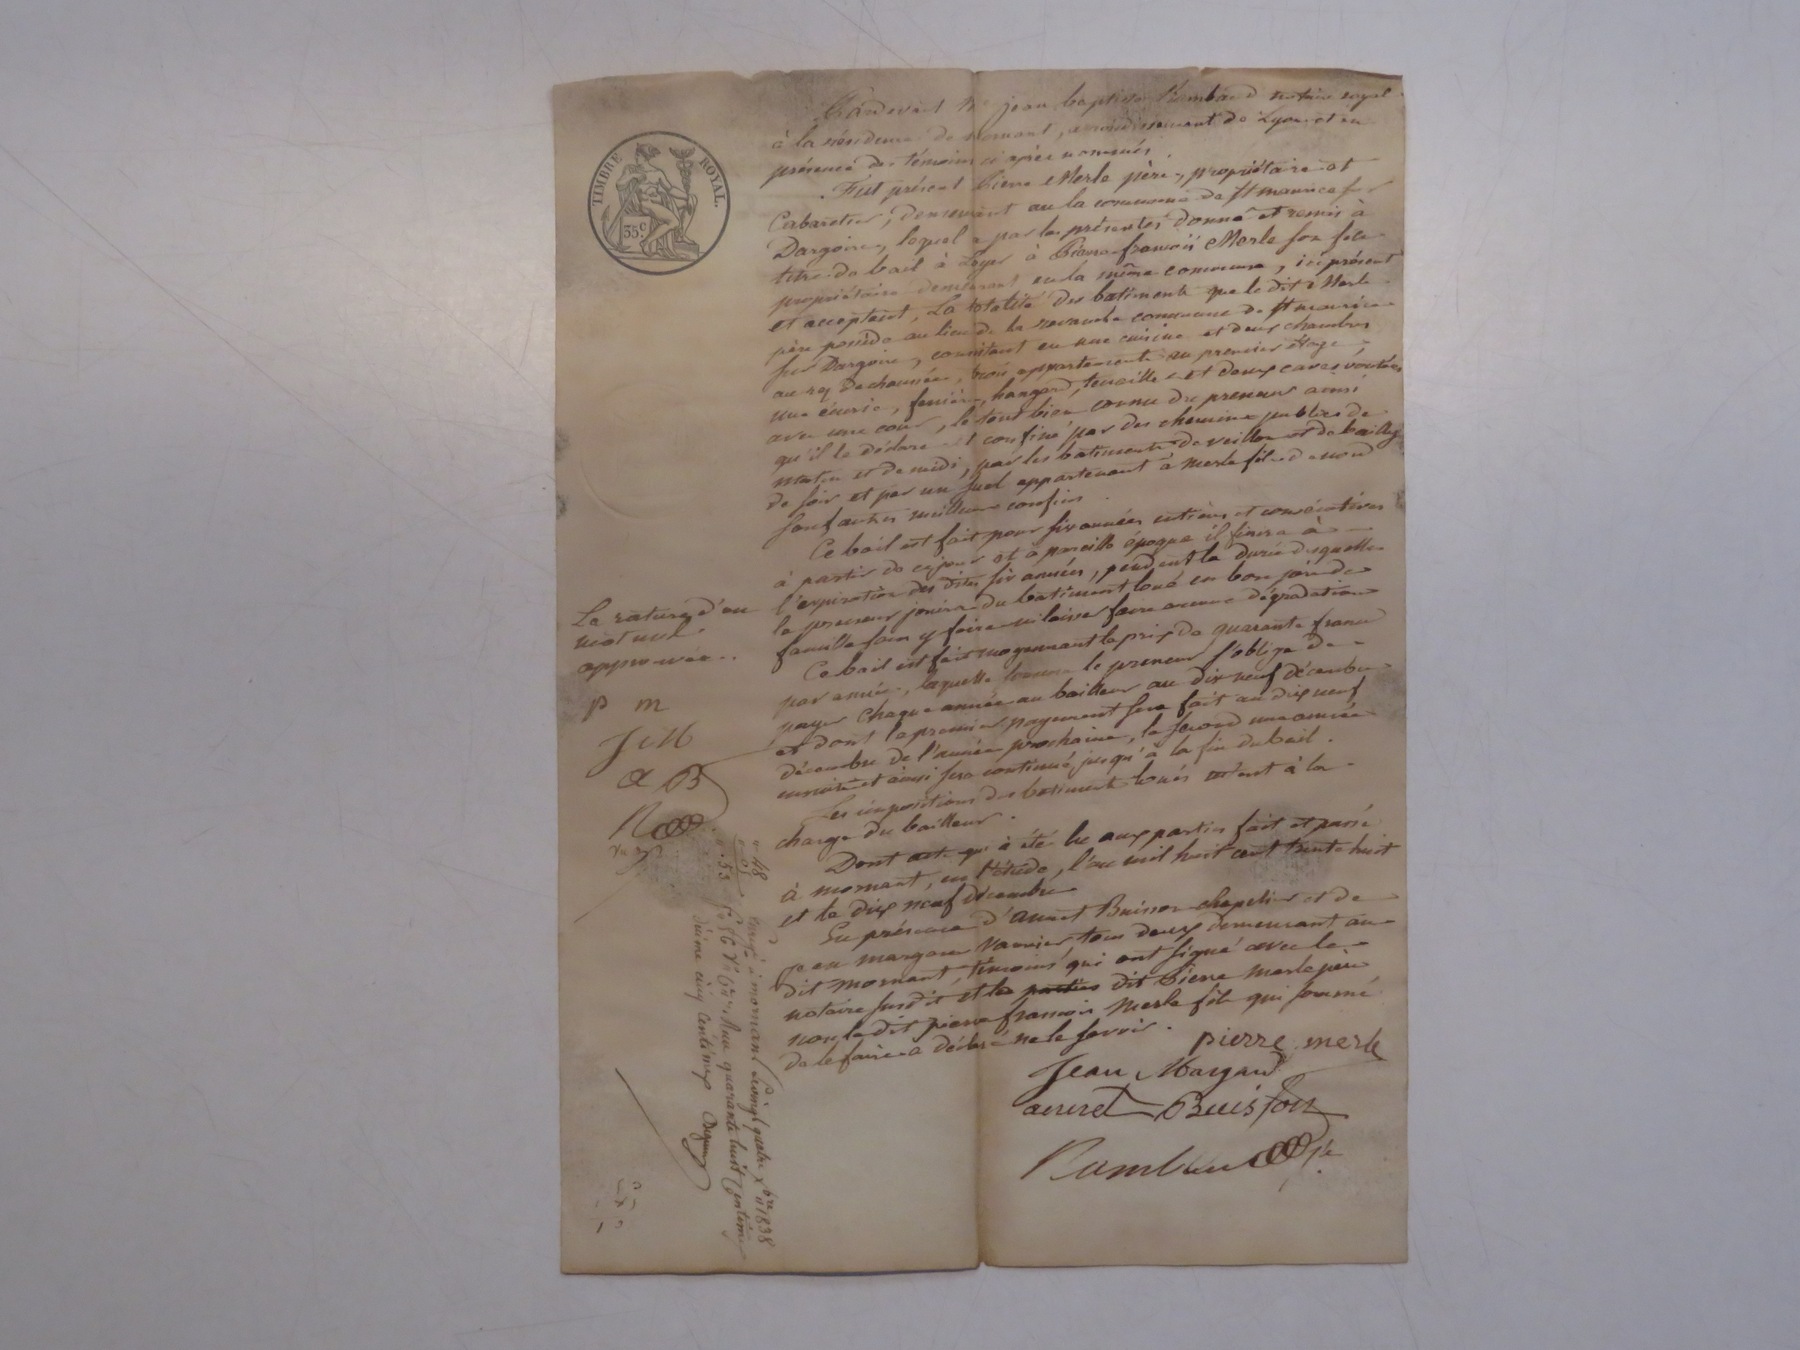 TIMBRE ROYAL.
35 c
Pardevant Me jean baptiste Rambaud notaire royal
à la résidence de mornant, arrondissement de Lyon et en
présence des témoins ci après nommés.
Fut présent Pierre Merle père, propriétaire et
Cabaretier, demeurant en la commune de St maurice sur
Dargoire, lequel a par les présentes donné et remis à
titre de bail à Loyer à Pierre françois Merle son fils
propriétaire demeurant en la même commune, ici présent
et acceptant, La totalité des batiments que le dit Merle
père possède au lieu de la commune de St maurice
sur Dargoire, consistant en une cuisine et deux chambres
au rez de chaussée, trois appartements au premier étage,
une écurie, fenière, hangard, et deux caves voutées
avec une cour, le tout bien connu du preneur ainsi
qu'il le déclare et confiné par des chemins publics de
matin et de midi, par les batiments de veillon et de bailly
de soir et par un suel appartenant à merle fils de nord
sauf autres meilleurs confins.
Ce bail est fait pour six années entières et consécutives
à partir de ce jour et à pareille époque il finira à
l'expiration des dites six années, pendant la durée desquelles
le preneur jouira du batiment loué en bon père de
famille sans y faire ni laisser faire aucune dégradation
Ce bail est fait moyennant le prix de quarante francs
par année, laquelle somme le preneur s'oblige de
payer chaque année au bailleur au dix neuf décembre
et dont le premier payement sera fait au dix neuf
décembre de l'année prochaine, le second une année
ensuite et ainsi sera continué jusqu'à la fin du bail.
Les impositions des batiments loués à la
charge du bailleur.
Dont acte qui à été lu aux parties fait et passé
à mornant, en l'étude, l'an mil huit cent trente huit
et le dix neuf décembre
En présence d'annet Buisson chapelier et de
jean margaud tous deux demeurant au
dit mornant, témoins qui ont signé avec le
notaire susdit et le parties dit Pierre merle père
non le dit pierre françois Merle fils qui sommé
de le faire a déclaré ne le savoir.
La rature d'un
mot nul
approuvée.
p m
J M
a B
R
pierre merle
Jean Margaud
annet Buisson
Rambaud
48
5
53
Enregé à mornant le vingt quatre Xbre 1838
fo 56 Vo C 6 quarante huit centimes
dixme cinq centimes